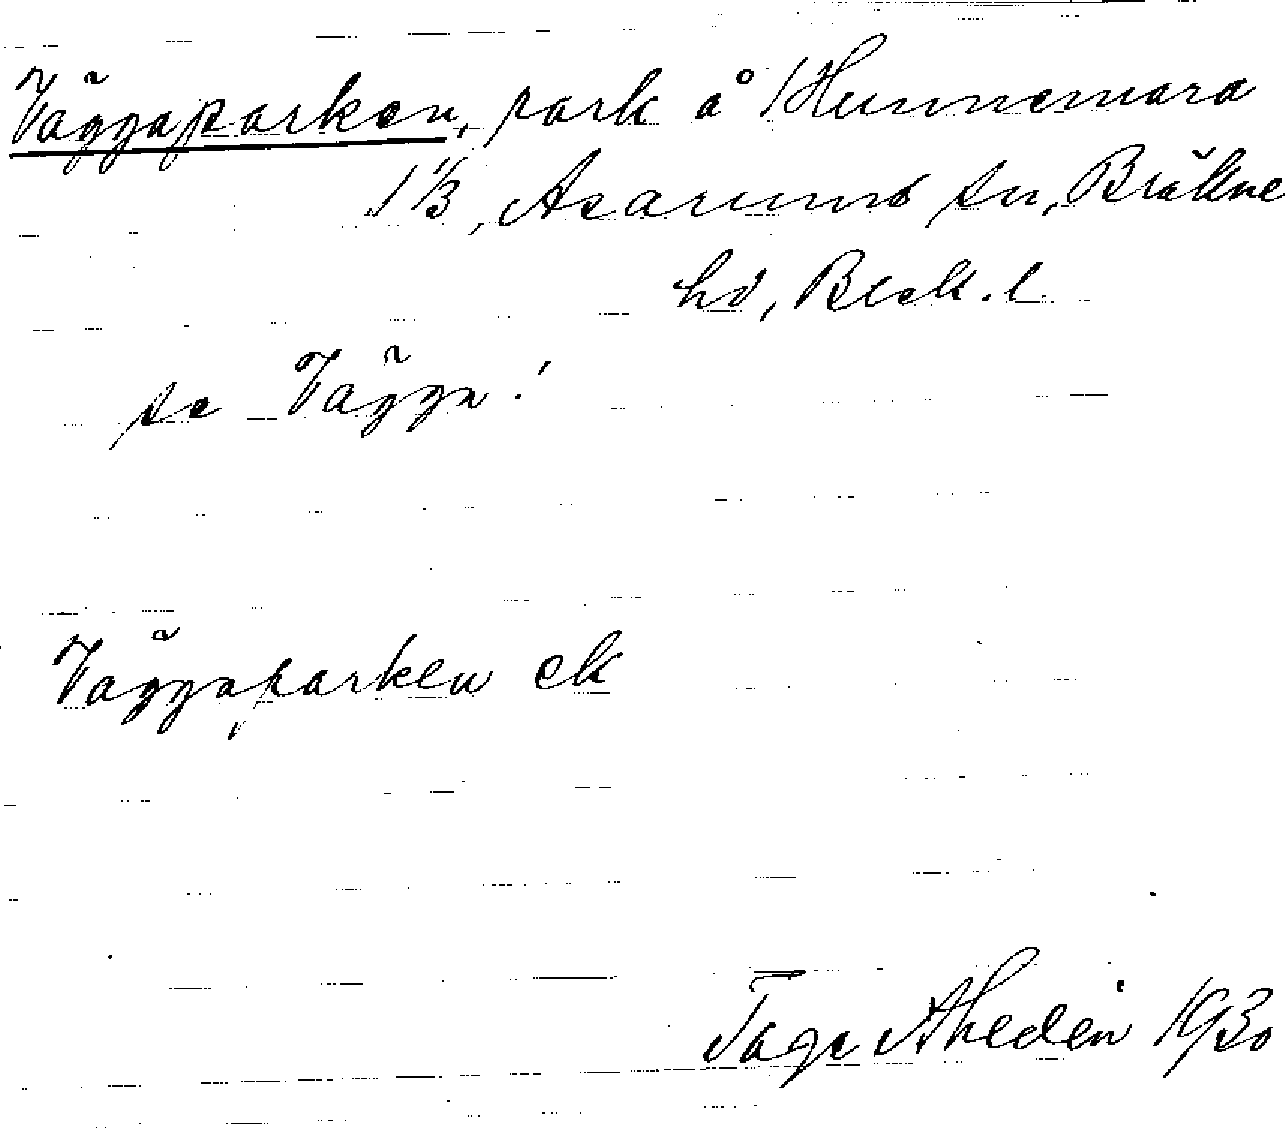 Väggaparken, park å Hunnemara
1 1/3, Asarums sn, Bräkne
hd, Blek. l.
se Vägga!
Väggaparken ek
Tage Ahedén 1930